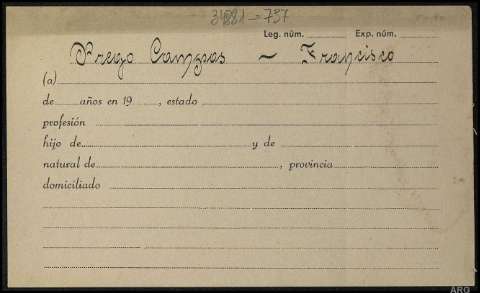 31881 - 737
Leg. núm. Exp. núm.
Prego Campos — Francisco
(a)
de años en 19 , estado
profesión
hijo de y de
natural de , provincia
domiciliado
ARG